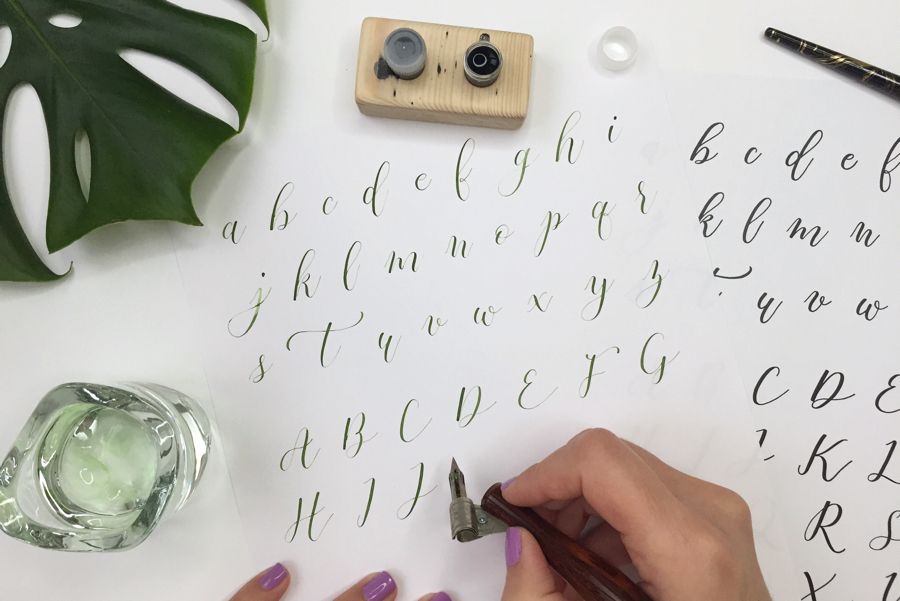 a b c d e f g h i
j k l m n o p q r
s t u v w x y z
A B C D E F G
H I J
b c d e f
k l m n
u v w
C D E
K L
R S